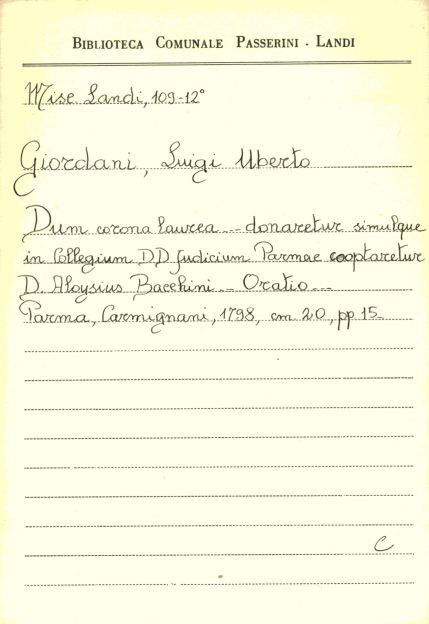 BIBLIOTECA COMUNALE PASSERINI - LANDI
Misc Landi, 109-12°
Giordani, Luigi Uberto
Dum corona laurea --- donaretur simulque
in Collegium D.D. Judicium Parmae cooptaretur
D. Aloysius Bacchini -- Oratio ---
Parma, Carmignani, 1798, cm 20, pp 15-
C